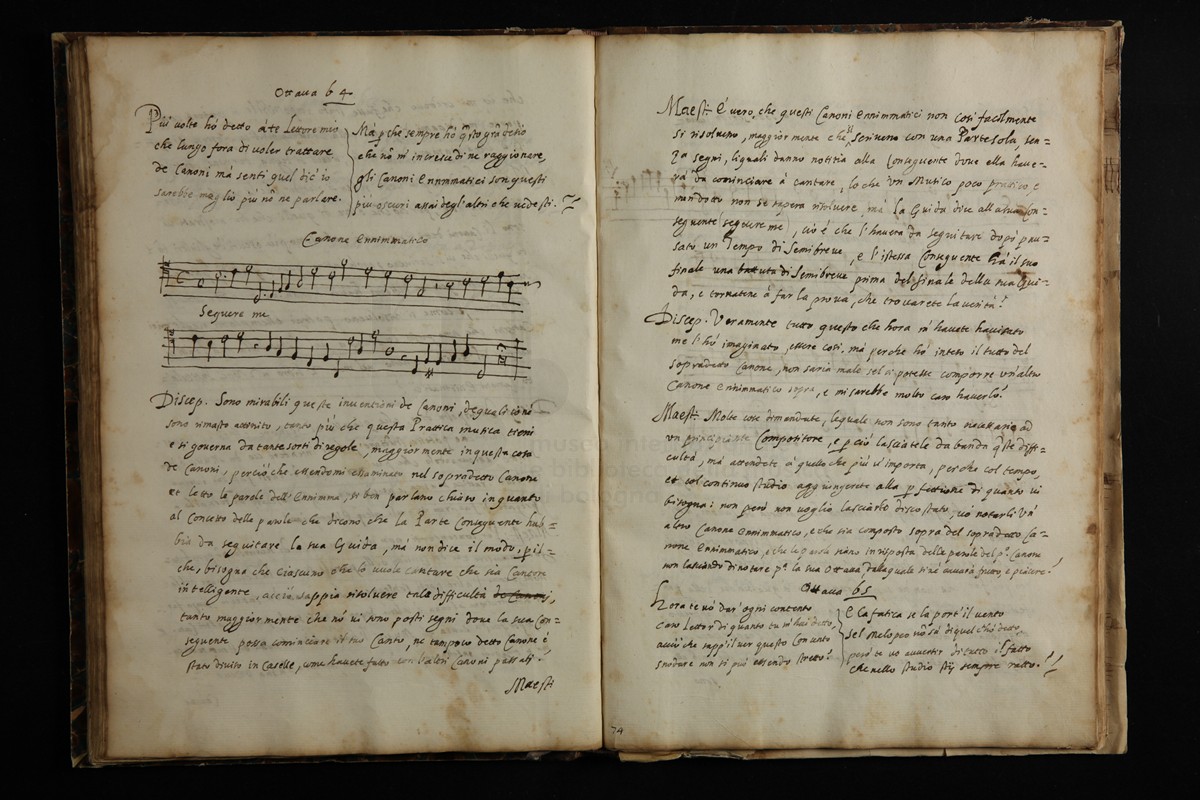 Ottava 64
Più volte hò detto à te lettore mio
che lungo fora di voler trattare
de Canoni mà senti quel dic' io
sarebbe meglio più nõ ne parlare.
Mà pche sempre hò qsto grã desio
che nõ m' incresce di ne raggionare,
gli Canoni ennimmatici son questi
più oscuri assai degl'altri che vedesti.
Canone Ennimmatico
Seguere me
Discep. Sono mirabili queste inventioni de Canoni, de quali io nè
sono rimasto attonito, tanto più che questa Prattica musica tieni
e si governa da tante sorti di regole, maggiormente in questa cosa
de Canoni, perciò che essendomi essaminato nel sopradetto Canone
et letto le parole dell' Ennimma, si ben parlano chiaro in quanto
al Concetto delle parole che dicono che la Parte Conseguente hab=
bia da seguitare la sua Guida, mà non dice il modo, p il=
che, bisogna che ciascuno che lo vuole cantare che sia Cantore
intelligente, acciò sappia risolvere tale difficultà de Canoni,
tanto maggiormente che nõ vi sono posti segni dove la sua Con=
seguente possa cominciare il suo Canto, ne tampoco detto Canone è
stato diviso in Caselle, come havete fatto con l'altri Canoni passati.
Maest:
Maest: È vero, che questi Canoni Ennimmatici non così facilmente
si risolveno, maggiormente che si scriveno con una Parte sola, sen=
za segni, li quali danno notitia alla Conseguente dove ella have=
rà da cominciare à cantare, lo che un Musico poco prattico, e
non dotto non se saperà risolvere, mà la Guida dice all' altra Con=
seguente (seguere me), ciò è che l' haverà da seguitare dopò pau=
sato un Tempo di Semibreve, e l' istessa Conseguente hà il suo
finale una battuta di Semibreve prima del finale della sua Gui=
da, e tornatene à far la prova, che trovarete la verità.
Discep. Veramente tutto questo che hora m' havete havisato
me l' hò imaginato, essere così, mà perche hò inteso il tutto del
sopradetto Canone, non saria male se si potesse comporre un' altro
Canone Ennimmatico sopra, e mi sarebbe molto caro haverlo.
Maest: Molte cose dimandate, lequale non sono tanto necessarie ad
un principiante Compositore, e p ciò lasciatele da banda qste diffi=
cultà, mà attendete à quello che più v' importa, perche col tempo,
et col continuo studio aggiongerete alla pfettione di quanto vi
bisogna: non però non voglio lasciarte discostato, vò notarli un'
altro Canone Ennimmatico, e che sia composto sopra del sopradetto Ca=
none Ennimmatico, e che le parole siano in risposta delle parole del pº Canone
non lasciando di notare pª la sua Ottava, dela quale si nè caverà frutto, e piacere.
Ottava 65
Hora te vò dar' ogni contento
Caro Lettor di quanto tu m' hai detto,
acciò che sapp' il ver questo Con unto
snodare non si può essendo stretto.
E la fatica se la port' il vento
sel Melopeo nõ sà di quel c'hò detto,
però te vò avvertir di tutto il fatto
che nello studio stij sempre ratto.
74
museo inte
e bibliotec
di bologna